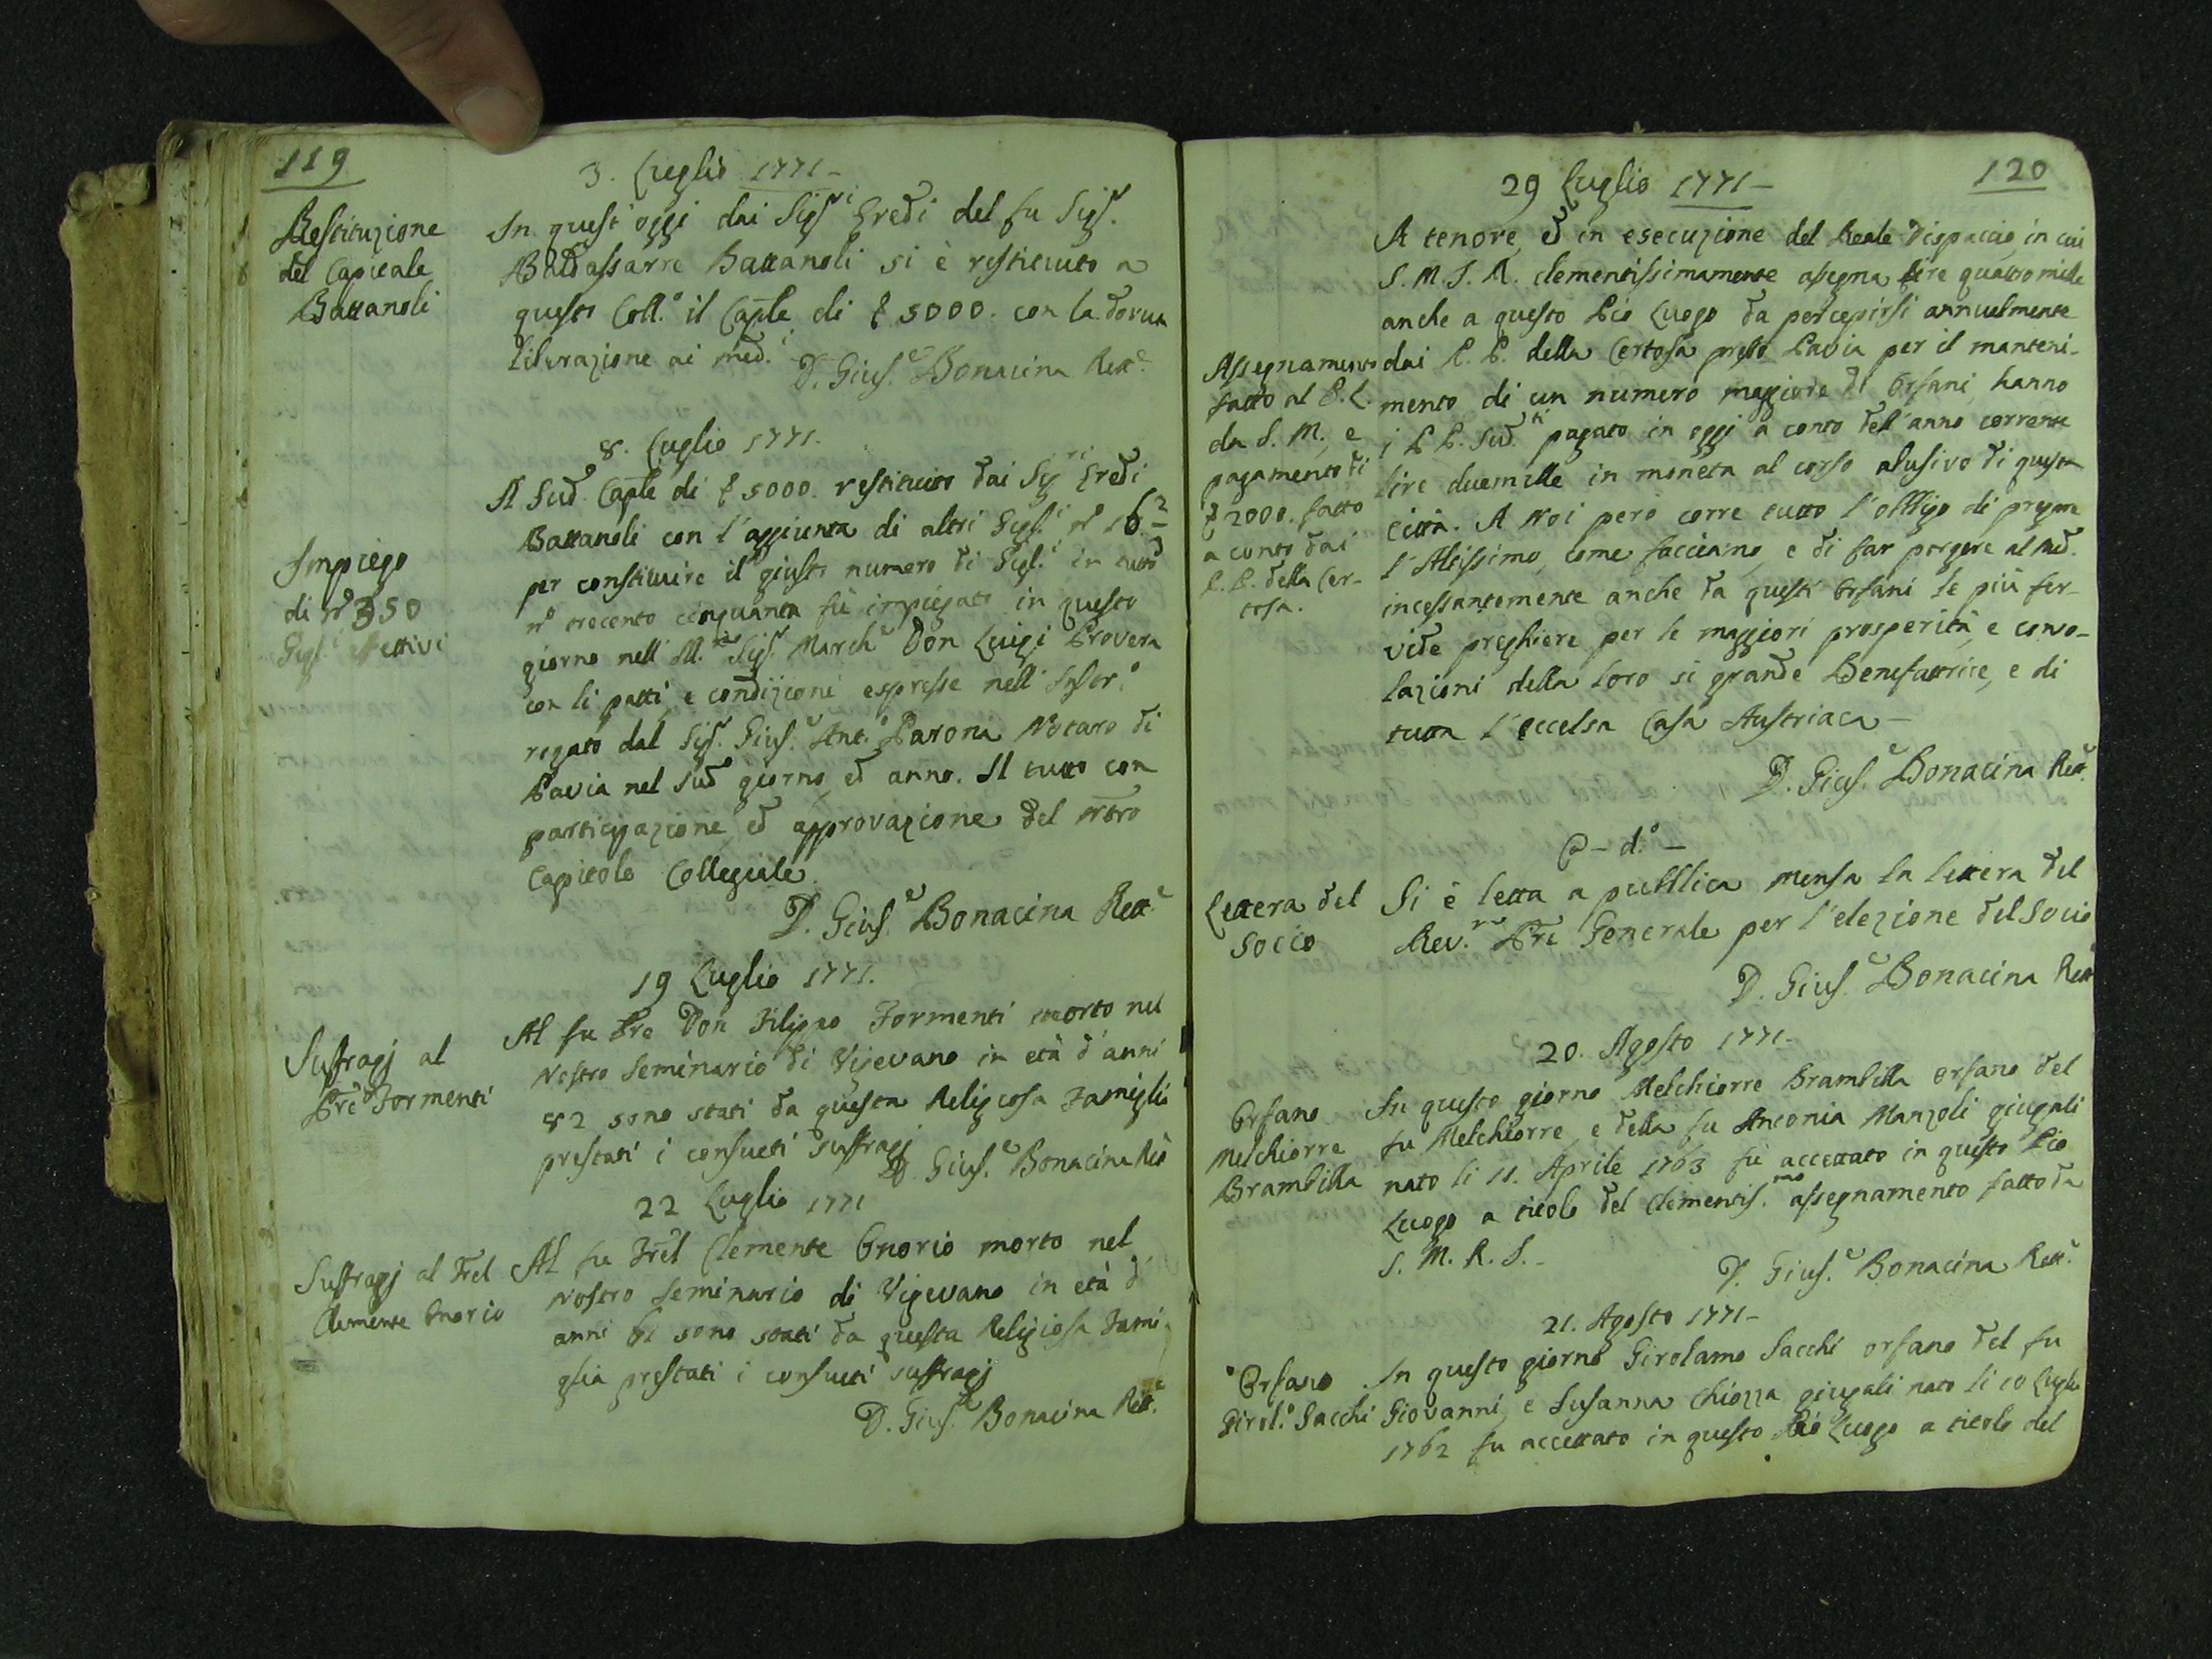 119
3. Luglio 1771 –
Restituzione
del Capitale
Battanoli
In quest'oggi dai Sigri Eredi del fu Sigr.
Baldassarre Battanoli si è restituito a
questo Coll.o il Caple di £ 5000. con la dovuta
liberazione ai med.i
D. Gius.e Bonacina Rett.e
8. Luglio 1771.
Impiego
di n.o 350
Gigl.i
Il Sud.o Caple di £ 5000. restituito dai Sig.ri Eredi
Battanoli con l'aggiunta di altri Gigl.i n.o
per constituire il giusto numero di Gigl.i in tutto
n.o trecento cinquanta fù impiegato in questo
giorno nell' Sigr. March.e Don Luigi Provera
con li patti, e condizioni espresse nell' Instr.o
rogato dal Sigr. Gius.e Ant.o Parona Notaro di
Pavia nel Sud.o giorno, ed anno. Il tutto con
participazione, ed approvazione del ntro
Capitolo Collegiale.
D. Gius.e Bonacina Rett.e
19 Luglio 1771.
Suffragj al
Pre Formenti
Al fu Pre Don Filippo Formenti morto nel
nostro Seminario di Vigevano in età d'anni
82 sono stati da questa Religiosa Famiglia
prestati i consueti suffragj
D. Gius.e Bonacina Rett
22 Luglio 1771
Suffragj al Frel
Clemente Onorio
Al fu Frel Clemente Onorio morto nel
nostro Seminario di Vigevano in età d'
anni 61 sono stati da questa Religiosa Fami-
glia prestati i consueti suffragj
D. Gius.e Bonacina Rett.e
120
29 Luglio 1771 –
Assegnamento
fatto al P. L.
da S. M., e
pagamento di
£ 2000. fatto
a conto dai
P. P. della Cer-
tosa.
A tenore, ed in esecuzione del Reale Dispaccio, in cui
S. M. I. R. clementissimamente assegna lire quattromille
anche a questo Pio Luogo da percepirsi annualmente
dai P. P. della Certosa presso Pavia per il manteni-
mento di un numero maggiore di Orfani, hanno
i P P. Sud.ti pagato in oggi a conto dell'anno corrente
lire duemille in moneta al corso abusivo di questa
città. A Noi però corre tutto l'obbligo di pregare
l'Altissimo, come facciamo, e di far porgere al med.
incessantemente anche da questi Orfani le più fer-
vide preghiere per le maggiori prosperità, e conso-
lazioni della loro sì grande Benefattrice, e di
tutta l'eccelsa Casa Austriaca –
D. Gius.e Bonacina Rett.e
– d.o –
Lettera del
Socio
Si è letta a pubblica mensa la lettera del
Rev.mo Pre Generale per l'elezione del Socio
D. Gius.e Bonacina Rett
20. Agosto 1771 –
Orfano
Melchiorre
Brambilla
In questo giorno Melchiorre Brambilla orfano del
fu Melchiorre, e della fu Antonia Manzoli giugali
nato li 11. Aprile 1763 fù accettato in questo Pio
Luogo a titolo del Clementis.mo assegnamento fatto da
S. M. R. I. –
D. Gius.e Bonacina Rett.e
21. Agosto 1771 –
Orfano
Girol.o Sacchi
In questo giorno Girolamo Sacchi orfano del fu
Giovanni, e Susanna Chiozza giugali nato li 10 Luglio
1762 fu accettato in questo Pio Luogo a titolo del